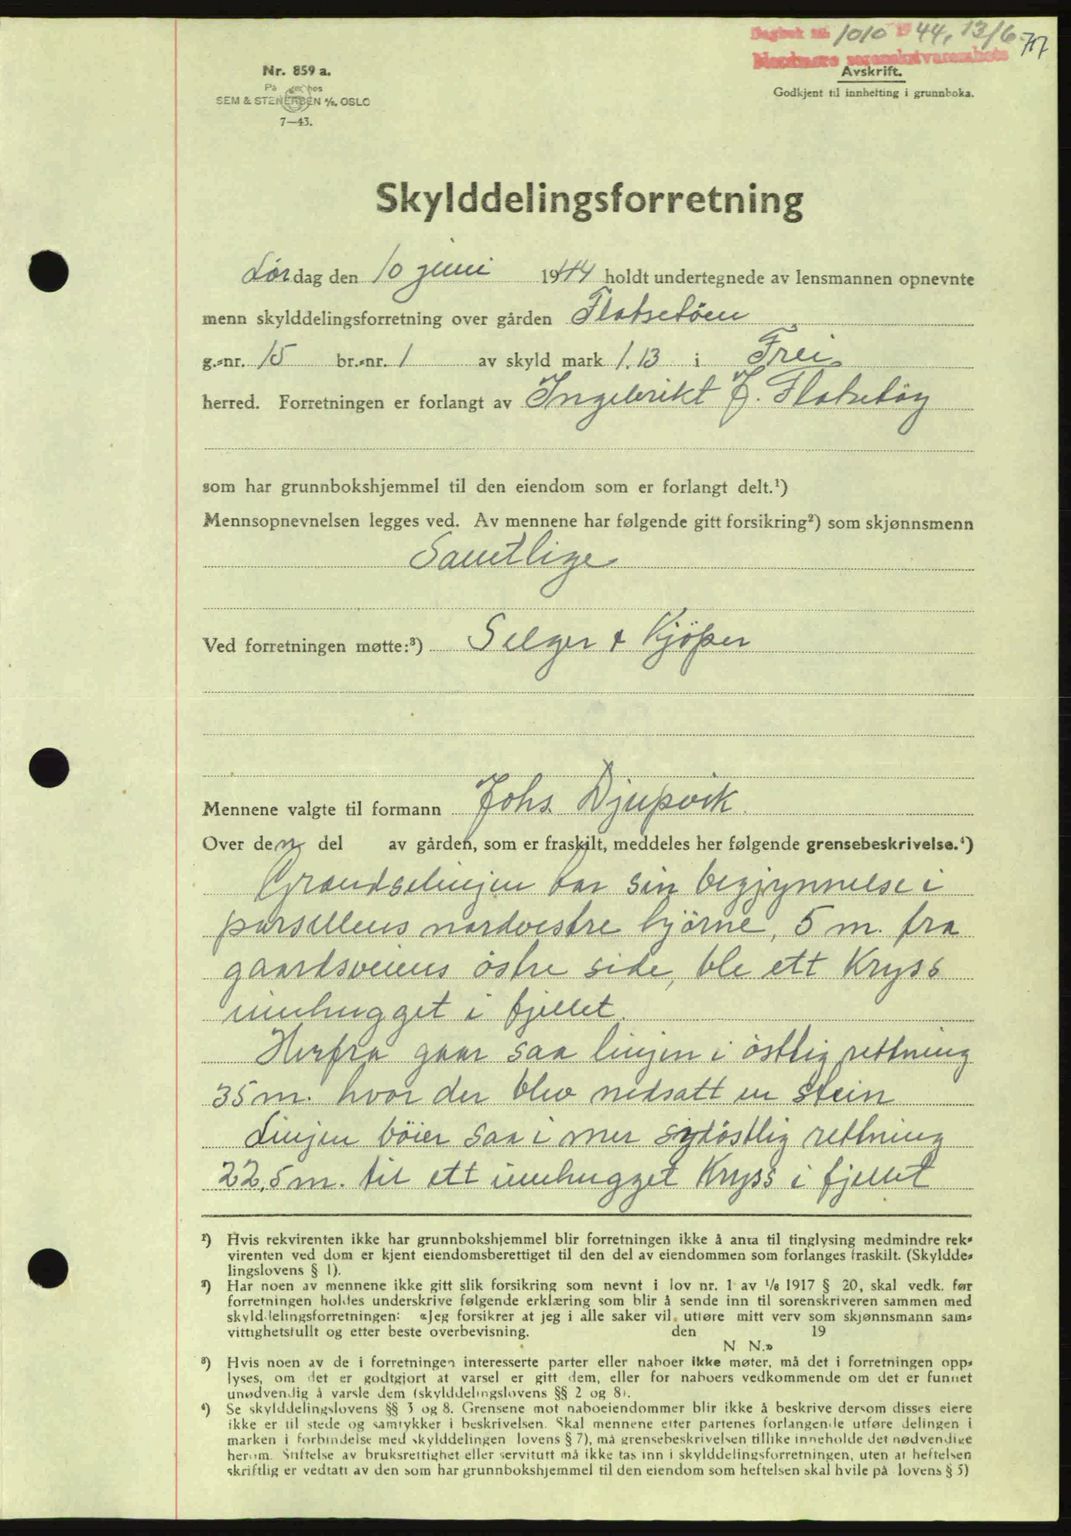 Dagbok nr. 1010 1944, 13/6
Nordmøre sorenskriverembete
717
Nr. 859 a.
På lager hos
SEM & STENERSEN A/S, OSLO
7—43.
Avskrift.
Godkjent til innhefting i grunnboka.
Skylddelingsforretning
Lørdag den 10 juni 1944 holdt undertegnede av lensmannen opnevnte
menn skylddelingsforretning over gården Flatsetöen
g.-nr. 15 br.-nr. 1 av skyld mark 1.13 i Frei
herred. Forretningen er forlangt av Ingebrikt J. Flatsetöy
som har grunnbokshjemmel til den eiendom som er forlangt delt.¹)
Mennsopnevnelsen legges ved. Av mennene har følgende gitt forsikring²) som skjønnsmenn
Samtlige
Ved forretningen møtte:³) Selger & Kjöper
Mennene valgte til formann Johs. Djupvik.
Over den del av gården, som er fraskilt, meddeles her følgende grensebeskrivelse.⁴)
Grændselinjen har sin begjynnelse i
parsellens nordvestre hjörne, 5 m. fra
gaardsveiens östre side, ble ett Kryss
innhugget i fjellet.
Herfra gaar saa linjen i östlig rettning
35 m. hvor der blev nedsatt en stein
Linjen böier saa i mer sydöstlig rettning
22,5 m. til ett innhugget Kryss i fjellet
¹) Hvis rekvirenten ikke har grunnbokshjemmel blir forretningen ikke å anta til tinglysing medmindre rek-
virenten ved dom er kjent eiendomsberettiget til den del av eiendommen som forlanges fraskilt. (Skyldde-
lingslovens § 1).
²) Har noen av mennene ikke gitt slik forsikring som nevnt i lov nr. 1 av 1/6 1917 § 20, skal vedk. før
forretningen holdes underskrive følgende erklæring som blir å sende inn til sorenskriveren sammen med
skylddelingsforretningen: «Jeg forsikrer at jeg i alle saker vil utføre mitt verv som skjønnsmann sam-
vittighetsfullt og etter beste overbevisning. den 19
N N.»
³) Hvis noen av de i forretningen interesserte parter eller naboer ikke møter, må det i forretningen opp-
lyses, om det er godtgjort at varsel er gitt dem, eller for naboers vedkommende om det er funnet
unødvendig å varsle dem (skylddelingslovens §§ 2 og 8).
⁴) Se skylddelingslovens §§ 3 og 8. Grensene mot naboeiendommer blir ikke å beskrive dersom disses eiere
ikke er til stede og samtykker i beskrivelsen. Skal mennene etter partenes forlangende utføre delingen i
marken i forbindelse med skylddelingen (lovens § 7), må grensebeskrivelsen tillike inneholde det nødvendige
herom. Stiftelse av bruksrettighet eller servitutt må ikke tas inn i skylddelingsforretningen, uten at heftelsen
skriftlig er vedtatt av den som har grunnbokshjemmel til den eiendom som heftelsen skal hvile på (lovens § 5)